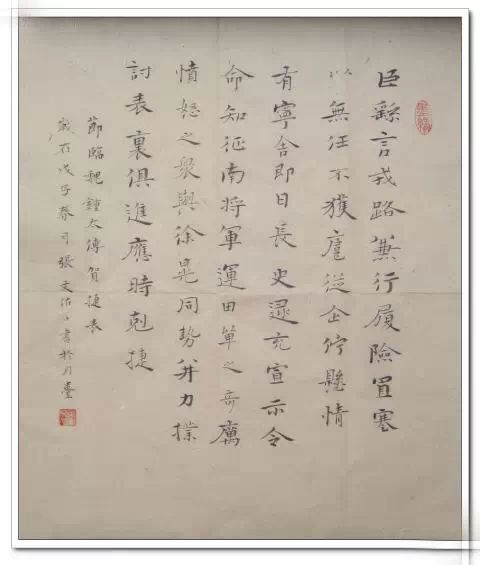 臣繇言戎路兼行履險冒寒
以無任不獲扈從企佇懸情
有寧舍即日長史逯充宣示令
命知征南將軍運田單之奇厲
憤怒之衆與徐晃同勢并力撲
討表裏俱進應時剋捷
節臨魏鍾太傅賀捷表
歲在戊子春張文書於月臺